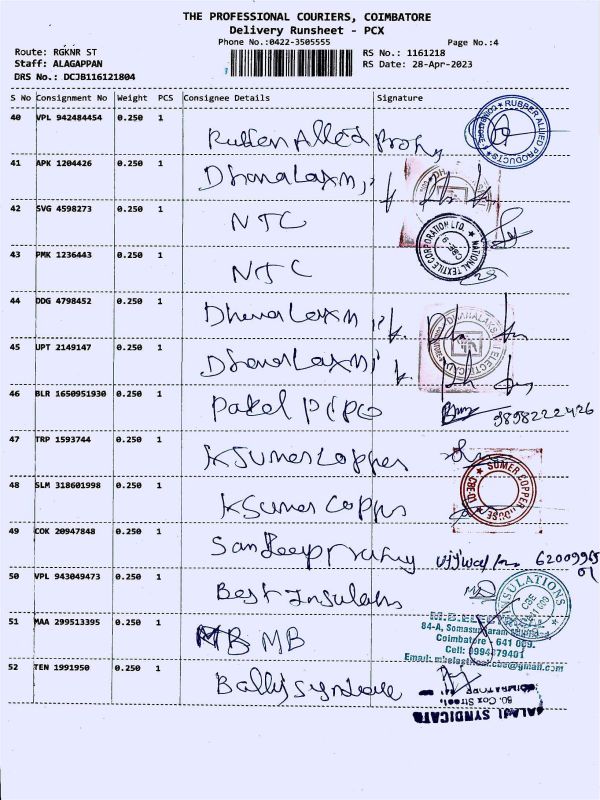 THE PROFESSIONAL COURIERS, COIMBATORE
Delivery Runsheet - PCX
Phone No.:0422-3505555 Page No.:4
Route: RGKNR ST RS No.: 1161218
Staff: ALAGAPPAN RS Date: 28-Apr-2023
DRS No.: DCJB116121804
S No Consignment No Weight PCS Consignee Details Signature
40 VPL 942484454 0.250 1
Rubber Allied Prods
RUBBER ALLIED PRODUCTS
41 APK 1204426 0.250 1
Dhanalaxmi
42 SVG 4598273 0.250 1
NTC
NATIONAL TEXTILE CORPORATION LTD.
CBE-9
43 PMK 1236443 0.250 1
NTC
44 DDG 4798452 0.250 1
Dhanalaxmi
45 UPT 2149147 0.250 1
Dhanalaxmi
46 BLR 1650951930 0.250 1
Patel Pipe
9898222426
47 TRP 1593744 0.250 1
K Sumer Copper
SUMER COPPER HOUSE
48 SLM 318601998 0.250 1
K Sumer Copper
49 COK 20947848 0.250 1
Sandeep
50 VPL 943049473 0.250 1
Best Insulations
INSULATIONS
CBE
51 MAA 299513395 0.250 1
MB MB
84-A, Somasundaram
Coimbatore - 641 009.
Cell: 9994379401
52 TEN 1991950 0.250 1
Balaji Syndicate
80, Cox Street,
COIMBATORE
BALAJI SYNDICATE